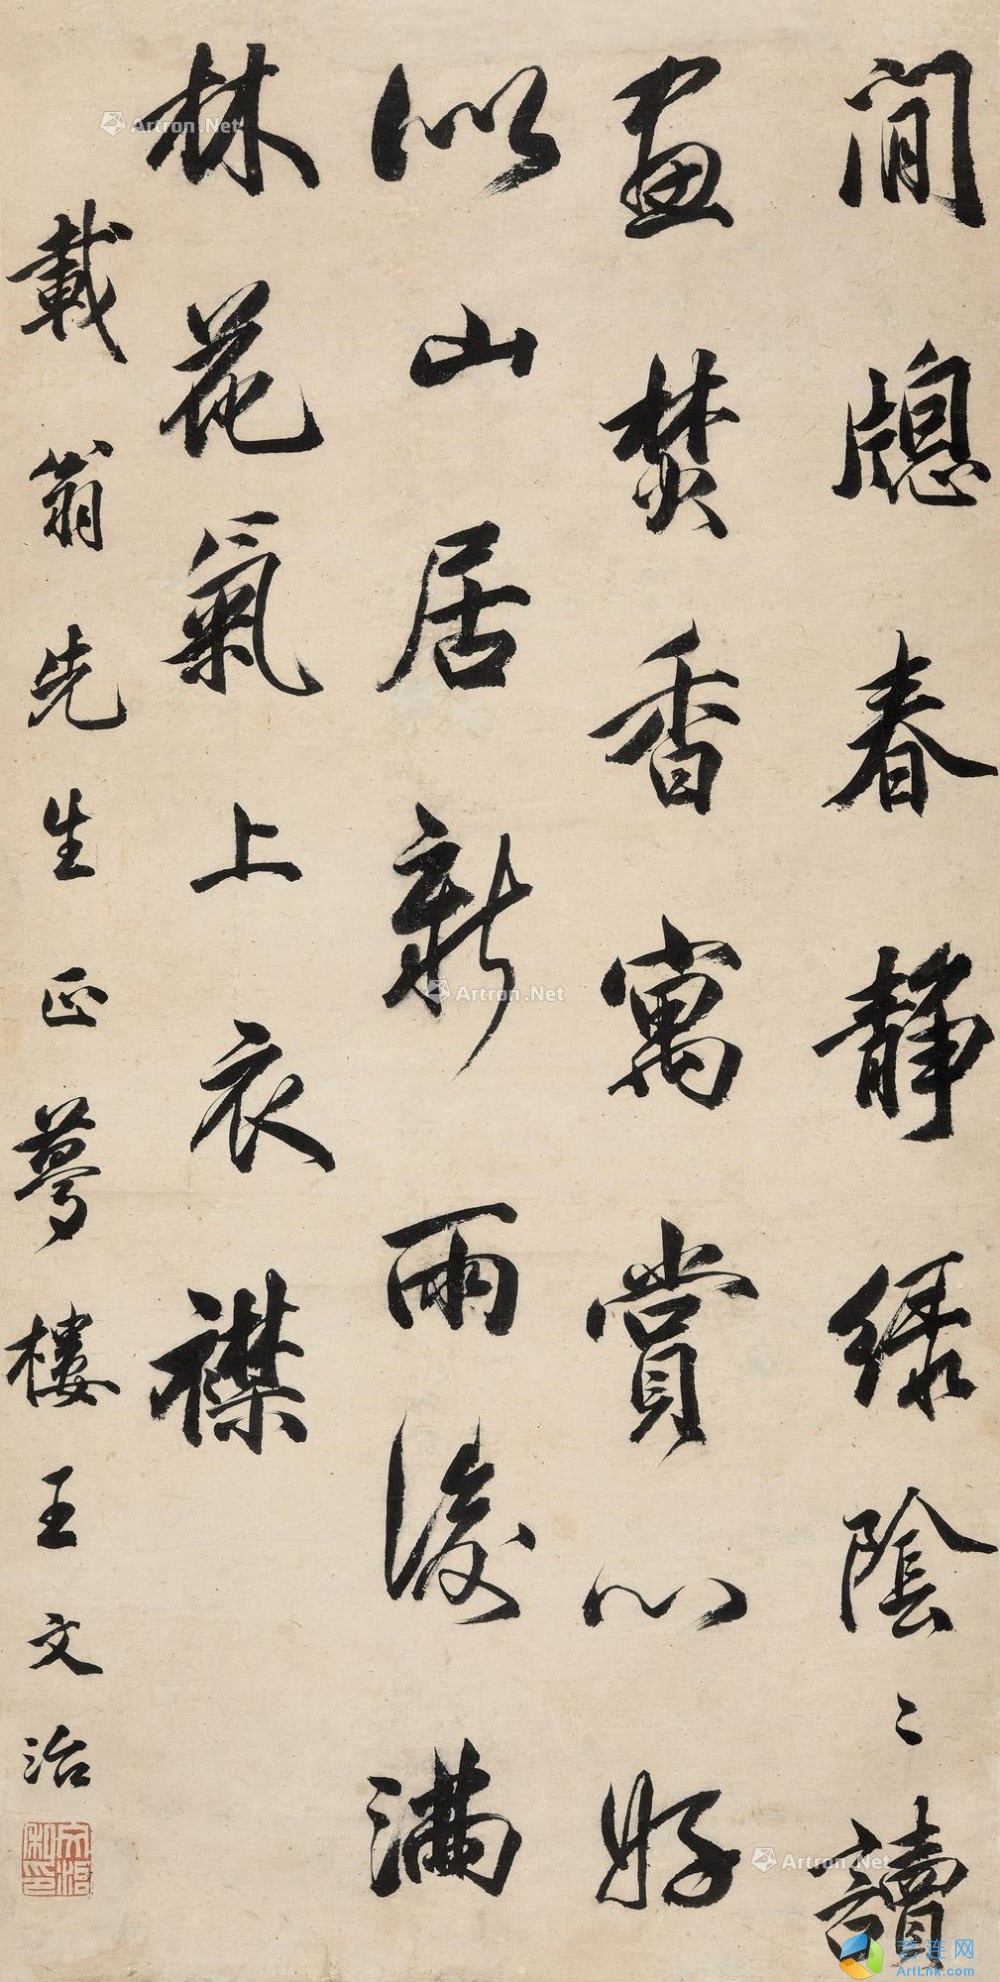 閒牕春靜綠陰〻讀
畫焚香寓賞心好
似山居新雨後滿
林花氣上衣襟
載翁先生正夢樓王文治
Artron.Net
Artron.Net
Artron.Net
艺连网
ArtLnk.com